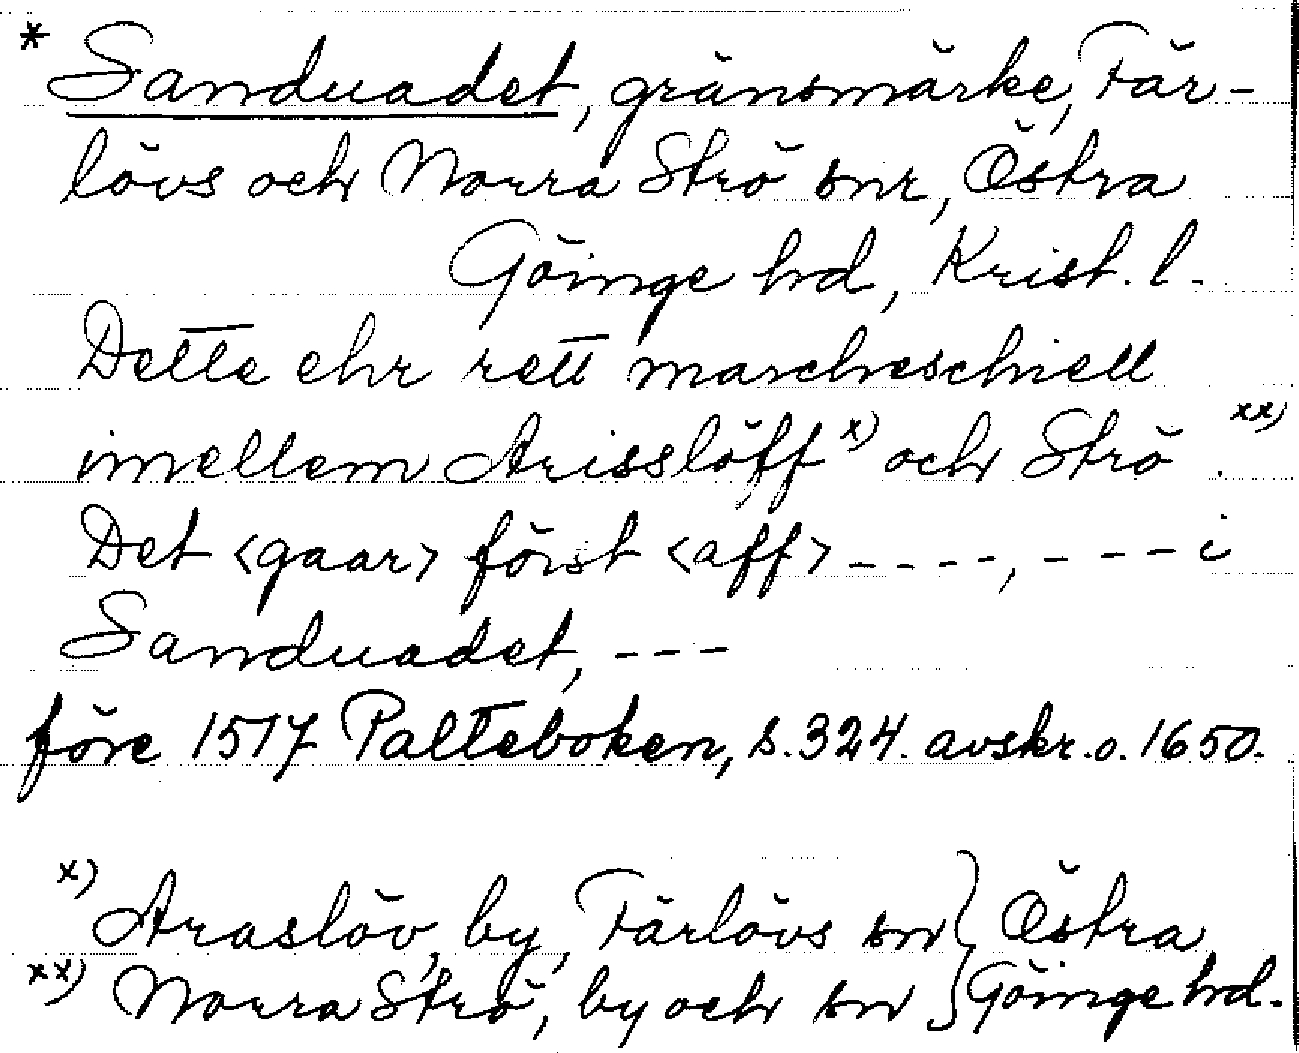 * Sanduadet, gränsmärke, Fär-
lövs och Norra Strö snr, Östra
Göinge hd, Krist. l.
Dette ehr rett marcheschiell
imellem Arisslöff x) och Strö xx).
Det <gaar> först <aff> - - - -, - - - - i
Sanduadet, - - -
före 1517 Palteboken, s. 324. avskr. o. 1650.
x) Araslöv, by, Färlövs sn } Östra
xx) Norra Strö, by och sn } Göinge hd.